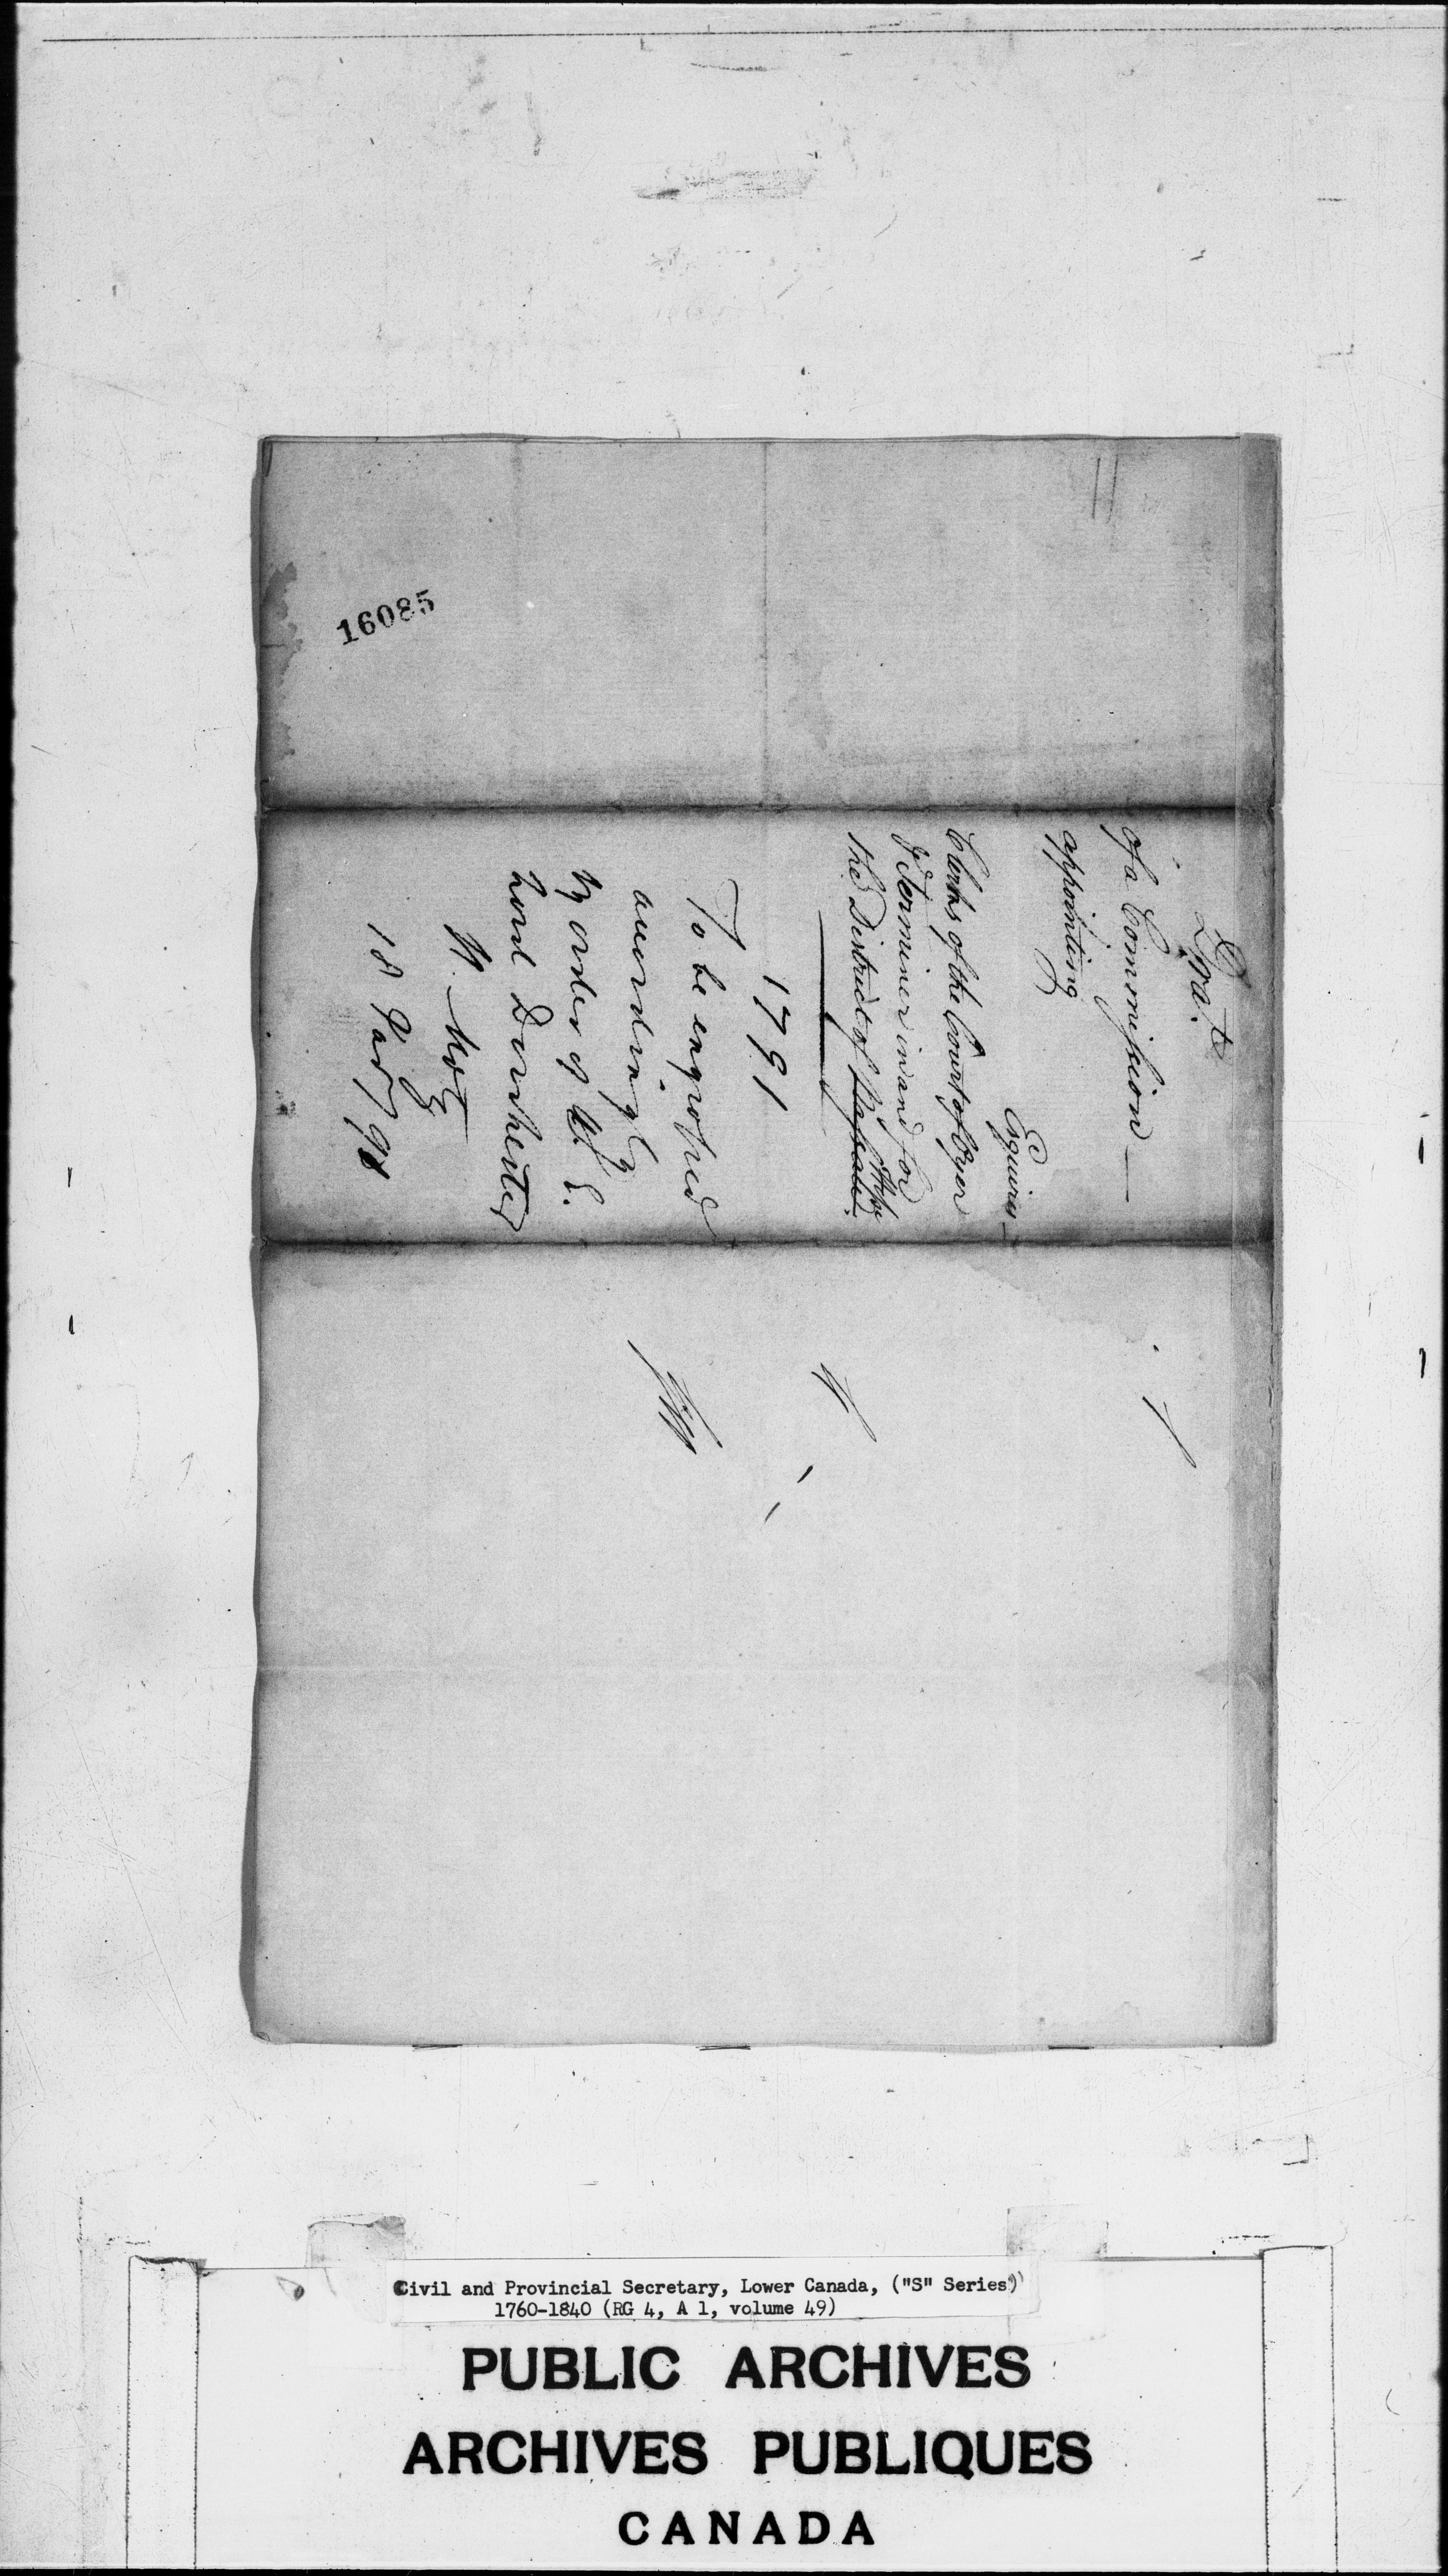 Dra.t
of a Commission —
appointing
Esquires —
Clerks of the Court of Oyer
& Terminer in and for
the District of
1791
To be engrossed
according
By order of H. E.
Lord Dorchester
H. Motz
18
16085
Civil and Provincial Secretary, Lower Canada, ("S" Series)
1760-1840 (RG 4, A 1, volume 49)
PUBLIC ARCHIVES
ARCHIVES PUBLIQUES
CANADA